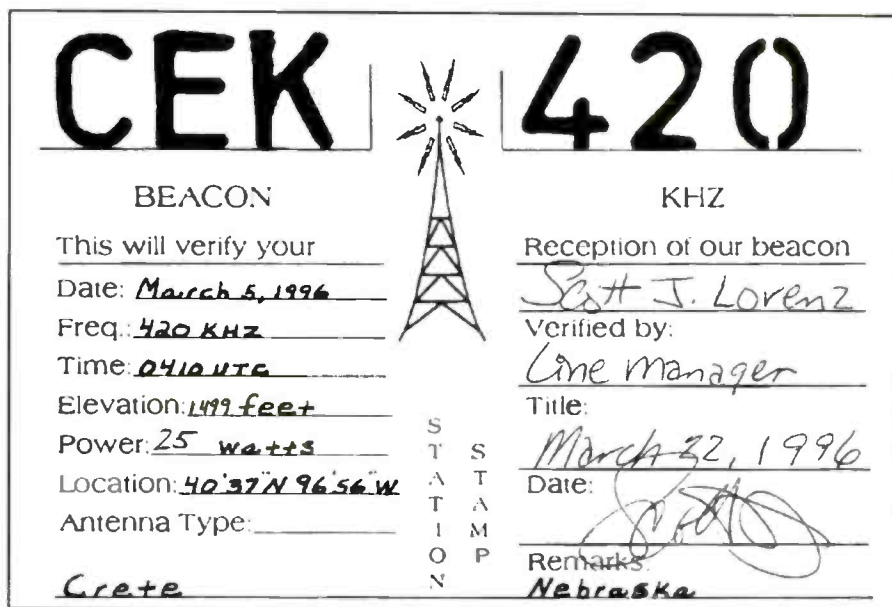 CEK 420
BEACON
KHZ
This will verify your
Date: March 5, 1996
Freq.: 420 KHZ
Time: 0410 UTC
Elevation: 1499 feet
Power: 25 watts
Location: 40'37"N 96'56"W
Antenna Type:
Crete
STATION
STAMP
Reception of our beacon
Scott J. Lorenz
Verified by:
Line Manager
Title:
March 22, 1996
Date:
Remarks:
Nebraska